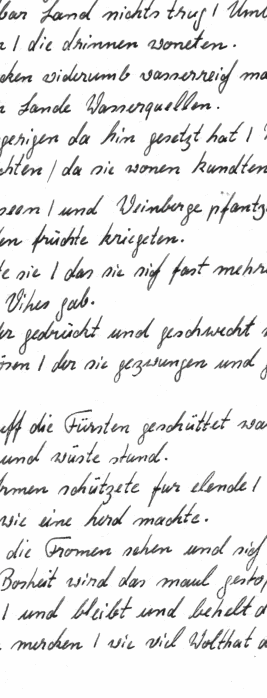 bar Land nichts trug / Umb
n / die drinnen woneten.
cken widerumb wasserreich ma
n Lande Wasserquellen.
gerigen da hin gesetzt hat /
chten / da sie wonen kundten
seen / und Weinberge pflantz
len früchte kriegeten.
te sie / das sie sich fast mehre
Vihes gab.
er gedrückt und geschwecht
ösen / der sie gezwungen und g
uff die Fürsten geschüttet wa
und wüste stund.
Armen schützete fur elende /
wie eine herd machte.
die Fromen sehen und sich
Bosheit wird das maul gestop
/ und bleibt und behelt d
mercken / wie viel Wolthat d